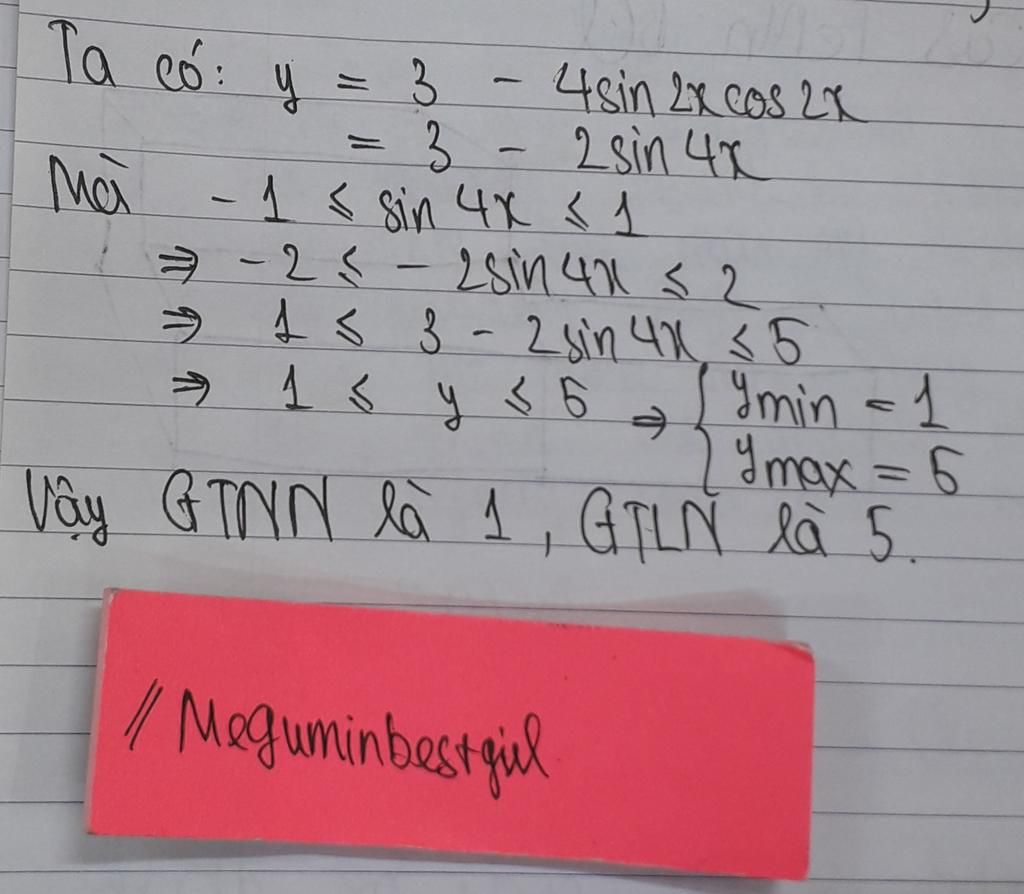 Ta có: y = 3 - 4sin 2x cos 2x
= 3 - 2sin 4x
Mà -1 ≤ sin 4x ≤ 1
⇒ -2 ≤ - 2sin 4x ≤ 2
⇒ 1 ≤ 3 - 2sin 4x ≤ 5
⇒ 1 ≤ y ≤ 5 ⇒ { ymin = 1
ymax = 5
Vậy GTNN là 1, GTLN là 5.
// Meguminbestgirl